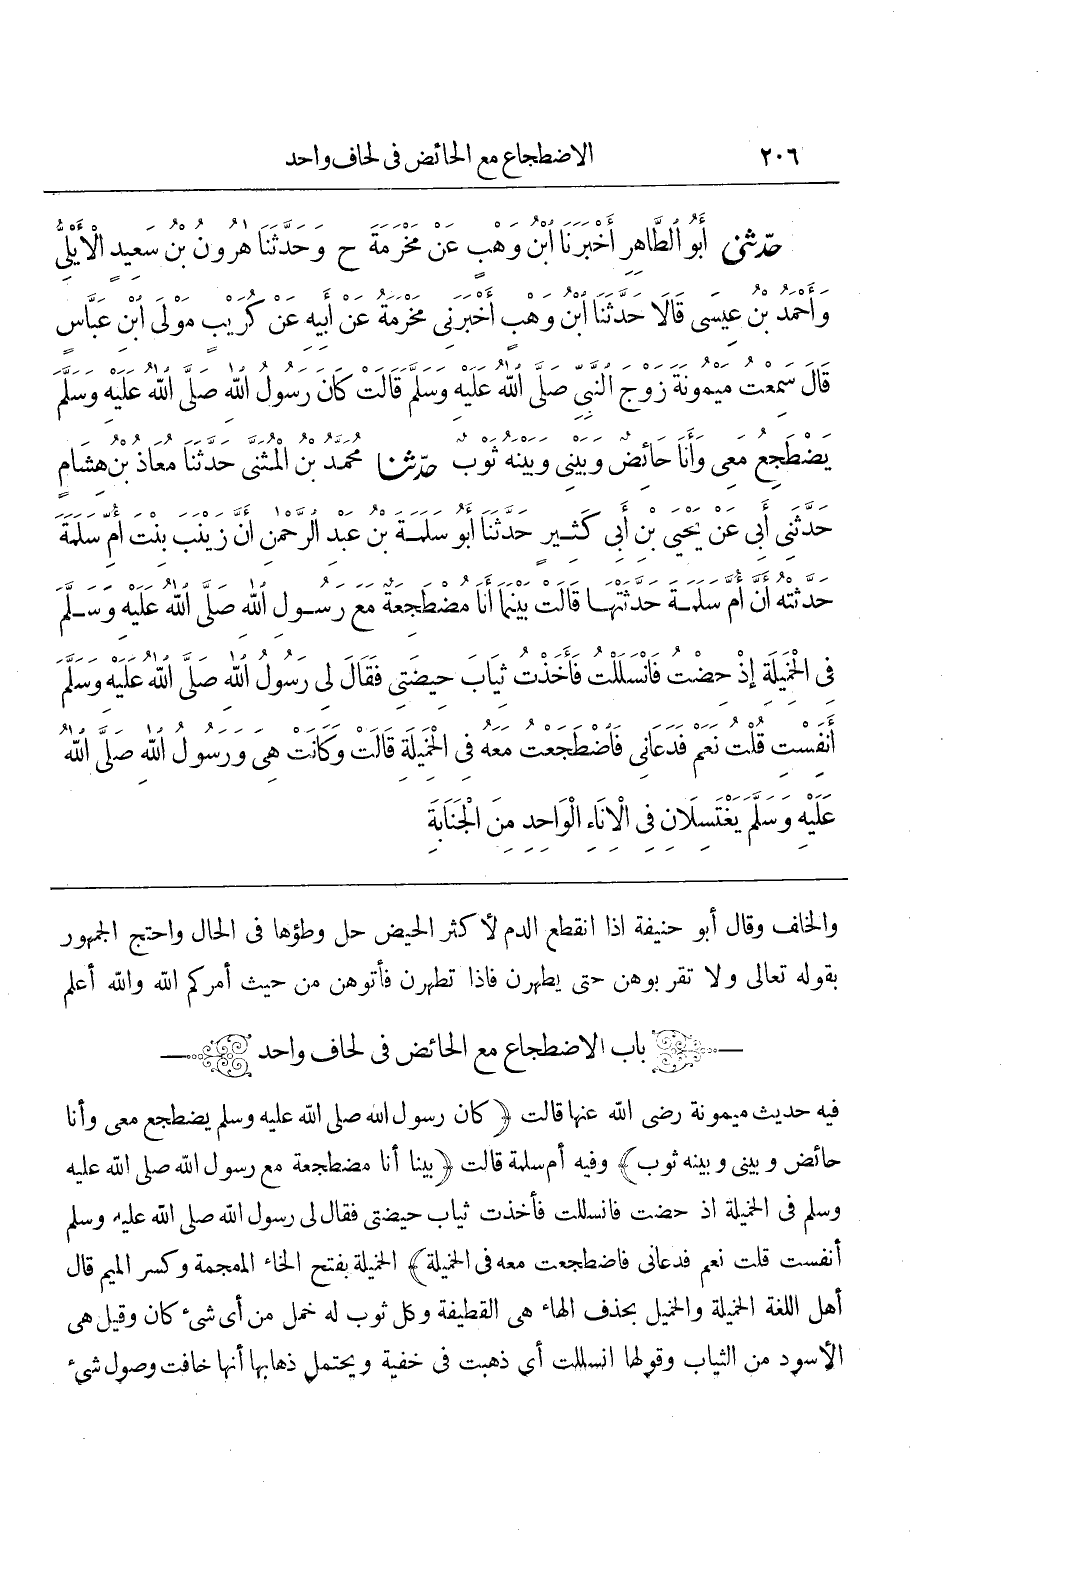 ٢٠٦ الاضطجاع مع الحائض فى لحاف واحد
حَدَّثَنِى أَبُو الطَّاهِرِ أَخْبَرَنَا ابْنُ وَهْبٍ عَنْ مَخْرَمَةَ ح وَحَدَّثَنَا هٰرُونُ بْنُ سَعِيدٍ الْأَيْلِىُّ
وَأَحْمَدُ بْنُ عِيسَى قَالَا حَدَّثَنَا ابْنُ وَهْبٍ أَخْبَرَنِى مَخْرَمَةُ عَنْ أَبِيهِ عَنْ كُرَيْبٍ مَوْلَى ابْنِ عَبَّاسٍ
قَالَ سَمِعْتُ مَيْمُونَةَ زَوْجَ النَّبِىِّ صَلَّى اللّٰهُ عَلَيْهِ وَسَلَّمَ قَالَتْ كَانَ رَسُولُ اللّٰهِ صَلَّى اللّٰهُ عَلَيْهِ وَسَلَّمَ
يَضْطَجِعُ مَعِى وَأَنَا حَائِضٌ وَبَيْنِى وَبَيْنَهُ ثَوْبٌ حَدَّثَنَا مُحَمَّدُ بْنُ الْمُثَنَّى حَدَّثَنَا مُعَاذُ بْنُ هِشَامٍ
حَدَّثَنِى أَبِى عَنْ يَحْيَى بْنِ أَبِى كَثِيرٍ حَدَّثَنَا أَبُو سَلَمَةَ بْنُ عَبْدِ الرَّحْمٰنِ أَنَّ زَيْنَبَ بِنْتَ أُمِّ سَلَمَةَ
حَدَّثَتْهُ أَنَّ أُمَّ سَلَمَةَ حَدَّثَتْهَا قَالَتْ بَيْنَمَا أَنَا مُضْطَجِعَةٌ مَعَ رَسُولِ اللّٰهِ صَلَّى اللّٰهُ عَلَيْهِ وَسَلَّمَ
فِى الْخَمِيلَةِ إِذْ حِضْتُ فَانْسَلَلْتُ فَأَخَذْتُ ثِيَابَ حِيضَتِى فَقَالَ لِى رَسُولُ اللّٰهِ صَلَّى اللّٰهُ عَلَيْهِ وَسَلَّمَ
أَنَفِسْتِ قُلْتُ نَعَمْ فَدَعَانِى فَاضْطَجَعْتُ مَعَهُ فِى الْخَمِيلَةِ قَالَتْ وَكَانَتْ هِىَ وَرَسُولُ اللّٰهِ صَلَّى اللّٰهُ
عَلَيْهِ وَسَلَّمَ يَغْتَسِلَانِ فِى الْإِنَاءِ الْوَاحِدِ مِنَ الْجَنَابَةِ
والخلف وقال أبو حنيفة اذا انقطع الدم لأكثر الحيض حل وطؤها فى الحال واحتج الجمهور
بقوله تعالى ولا تقربوهن حتى يطهرن فاذا تطهرن فأتوهن من حيث أمركم الله والله أعلم
باب الاضطجاع مع الحائض فى لحاف واحد
فيه حديث ميمونة رضى الله عنها قالت ﴿كان رسول الله صلى الله عليه وسلم يضطجع معى وأنا
حائض وبينى وبينه ثوب﴾ وفيه أم سلمة قالت ﴿بينا أنا مضطجعة مع رسول الله صلى الله عليه
وسلم فى الخميلة اذ حضت فانسللت فأخذت ثياب حيضتى فقال لى رسول الله صلى الله عليه وسلم
أنفست قلت نعم فدعانى فاضطجعت معه فى الخميلة﴾ الخميلة بفتح الخاء المعجمة وكسر الميم قال
أهل اللغة الخميلة والخميل بحذف الهاء هى القطيفة وكل ثوب له خمل من أى شىء كان وقيل هى
الأسود من الثياب وقولها انسللت أى ذهبت فى خفية ويحتمل ذهابها أنها خافت وصول شىء